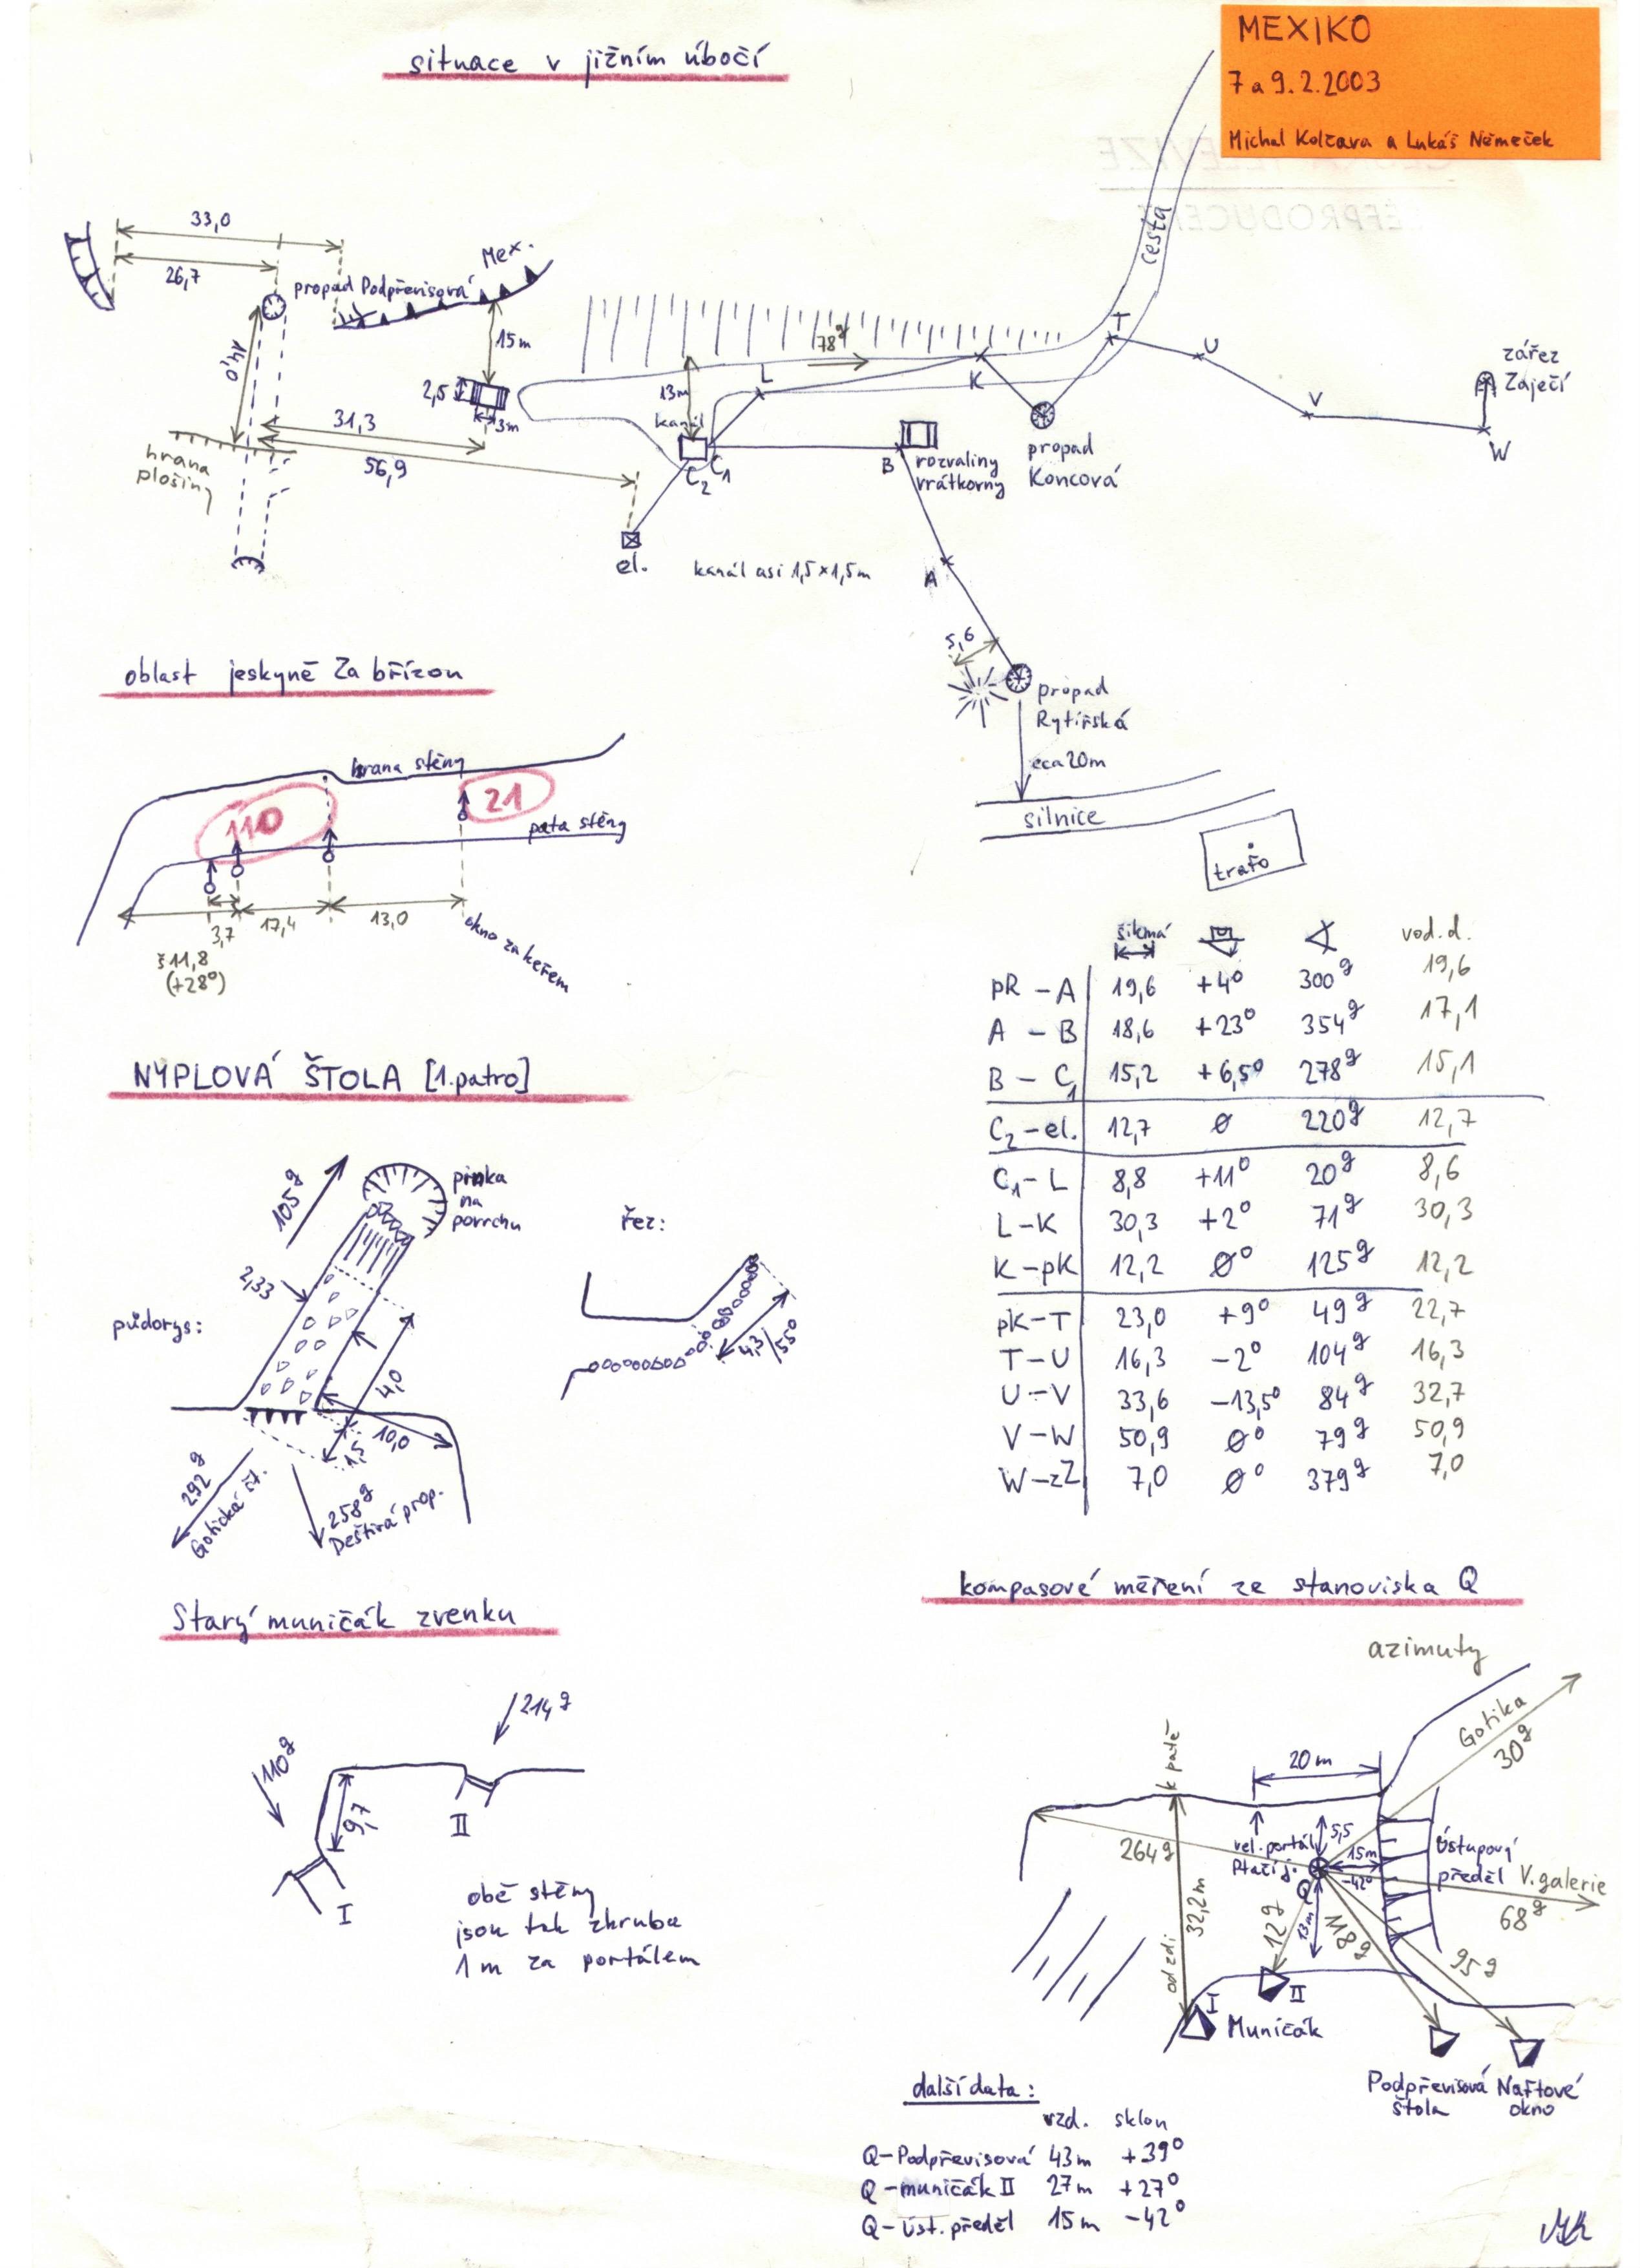 situace v jižním úbočí
MEXIKO
7 a 9.2.2003
Michal Kolčava a Lukáš Němeček
cesta
33,0
26,7
propad Podpřevisová
Mex.
14,0
15m
2,5
3m
31,3
56,9
hrana
plošiny
13m
kanál
78g
L
K
T
U
V
W
zářez
Zaječí
C2
C1
B
rozvaliny
vrátkovny
propad
Koncová
el.
kanál asi 1,5×1,5m
A
5,6
propad
Rytířská
cca 20m
silnice
trafo
oblast jeskyně Za břízou
hrana stěny
110
21
pata stěny
3,7
17,4
13,0
š 11,8
(+28°)
okno za keřem
šikmá
vod. d.
pR – A 19,6 +4° 300g 19,6
A – B 18,6 +23° 354g 17,1
B – C1 15,2 +6,5° 278g 15,1
C2 – el. 12,7 ø 220g 12,7
C1 – L 8,8 +11° 20g 8,6
L – K 30,3 +2° 71g 30,3
K – pK 12,2 ø° 125g 12,2
pK – T 23,0 +9° 49g 22,7
T – U 16,3 –2° 104g 16,3
U – V 33,6 –13,5° 84g 32,7
V – W 50,9 ø° 79g 50,9
W – zZ 7,0 ø° 379g 7,0
NÝPLOVÁ ŠTOLA [1. patro]
105g
pinka
na
povrchu
2,33
půdorys:
4,0
10,0
1,5
292g
Gotická čt.
258g
Deštivá prop.
řez:
4,3/55°
Starý muničák zvenku
214g
110g
9,7
II
I
obě stěny
jsou tak zhruba
1 m za portálem
kompasové měření ze stanoviska Q
azimuty
Gotika
30g
20 m
k patě
264g
vel. portál
Ptačí j.
5,5
15m
–42°
Q
Ústupový
předěl
V. galerie
68g
32,2m
od zdi
12g
13m
118g
95g
I
II
Muničák
Podpřevisová
štola
Naftové
okno
další data:
vzd. sklon
Q–Podpřevisová 43m +39°
Q–muničák II 27m +27°
Q–úst. předěl 15m –42°
MK